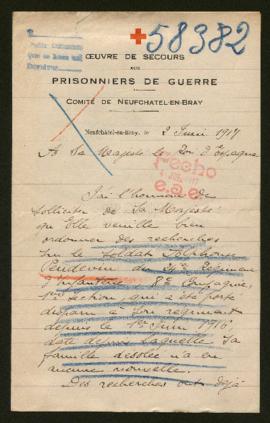 58382
ŒUVRE DE SECOURS
AUX
PRISONNIERS DE GUERRE
COMITÉ DE NEUFCHATEL-EN-BRAY
Neufchâtel-en-Bray, le 2 Juin 1917
A Sa Majesté le Roi d'Espagne
fecho
J'ai l'honneur de
solliciter de Sa Majesté
qu'Elle veuille bien
ordonner des recherches
sur le soldat Alphonse
du Régiment
infanterie 8e Compagnie
section qui a été porté
disparu à son régiment
depuis le 1er Juin 1916,
date depuis laquelle sa
famille désolée n'a eu
aucune nouvelle.
Des recherches ont déjà